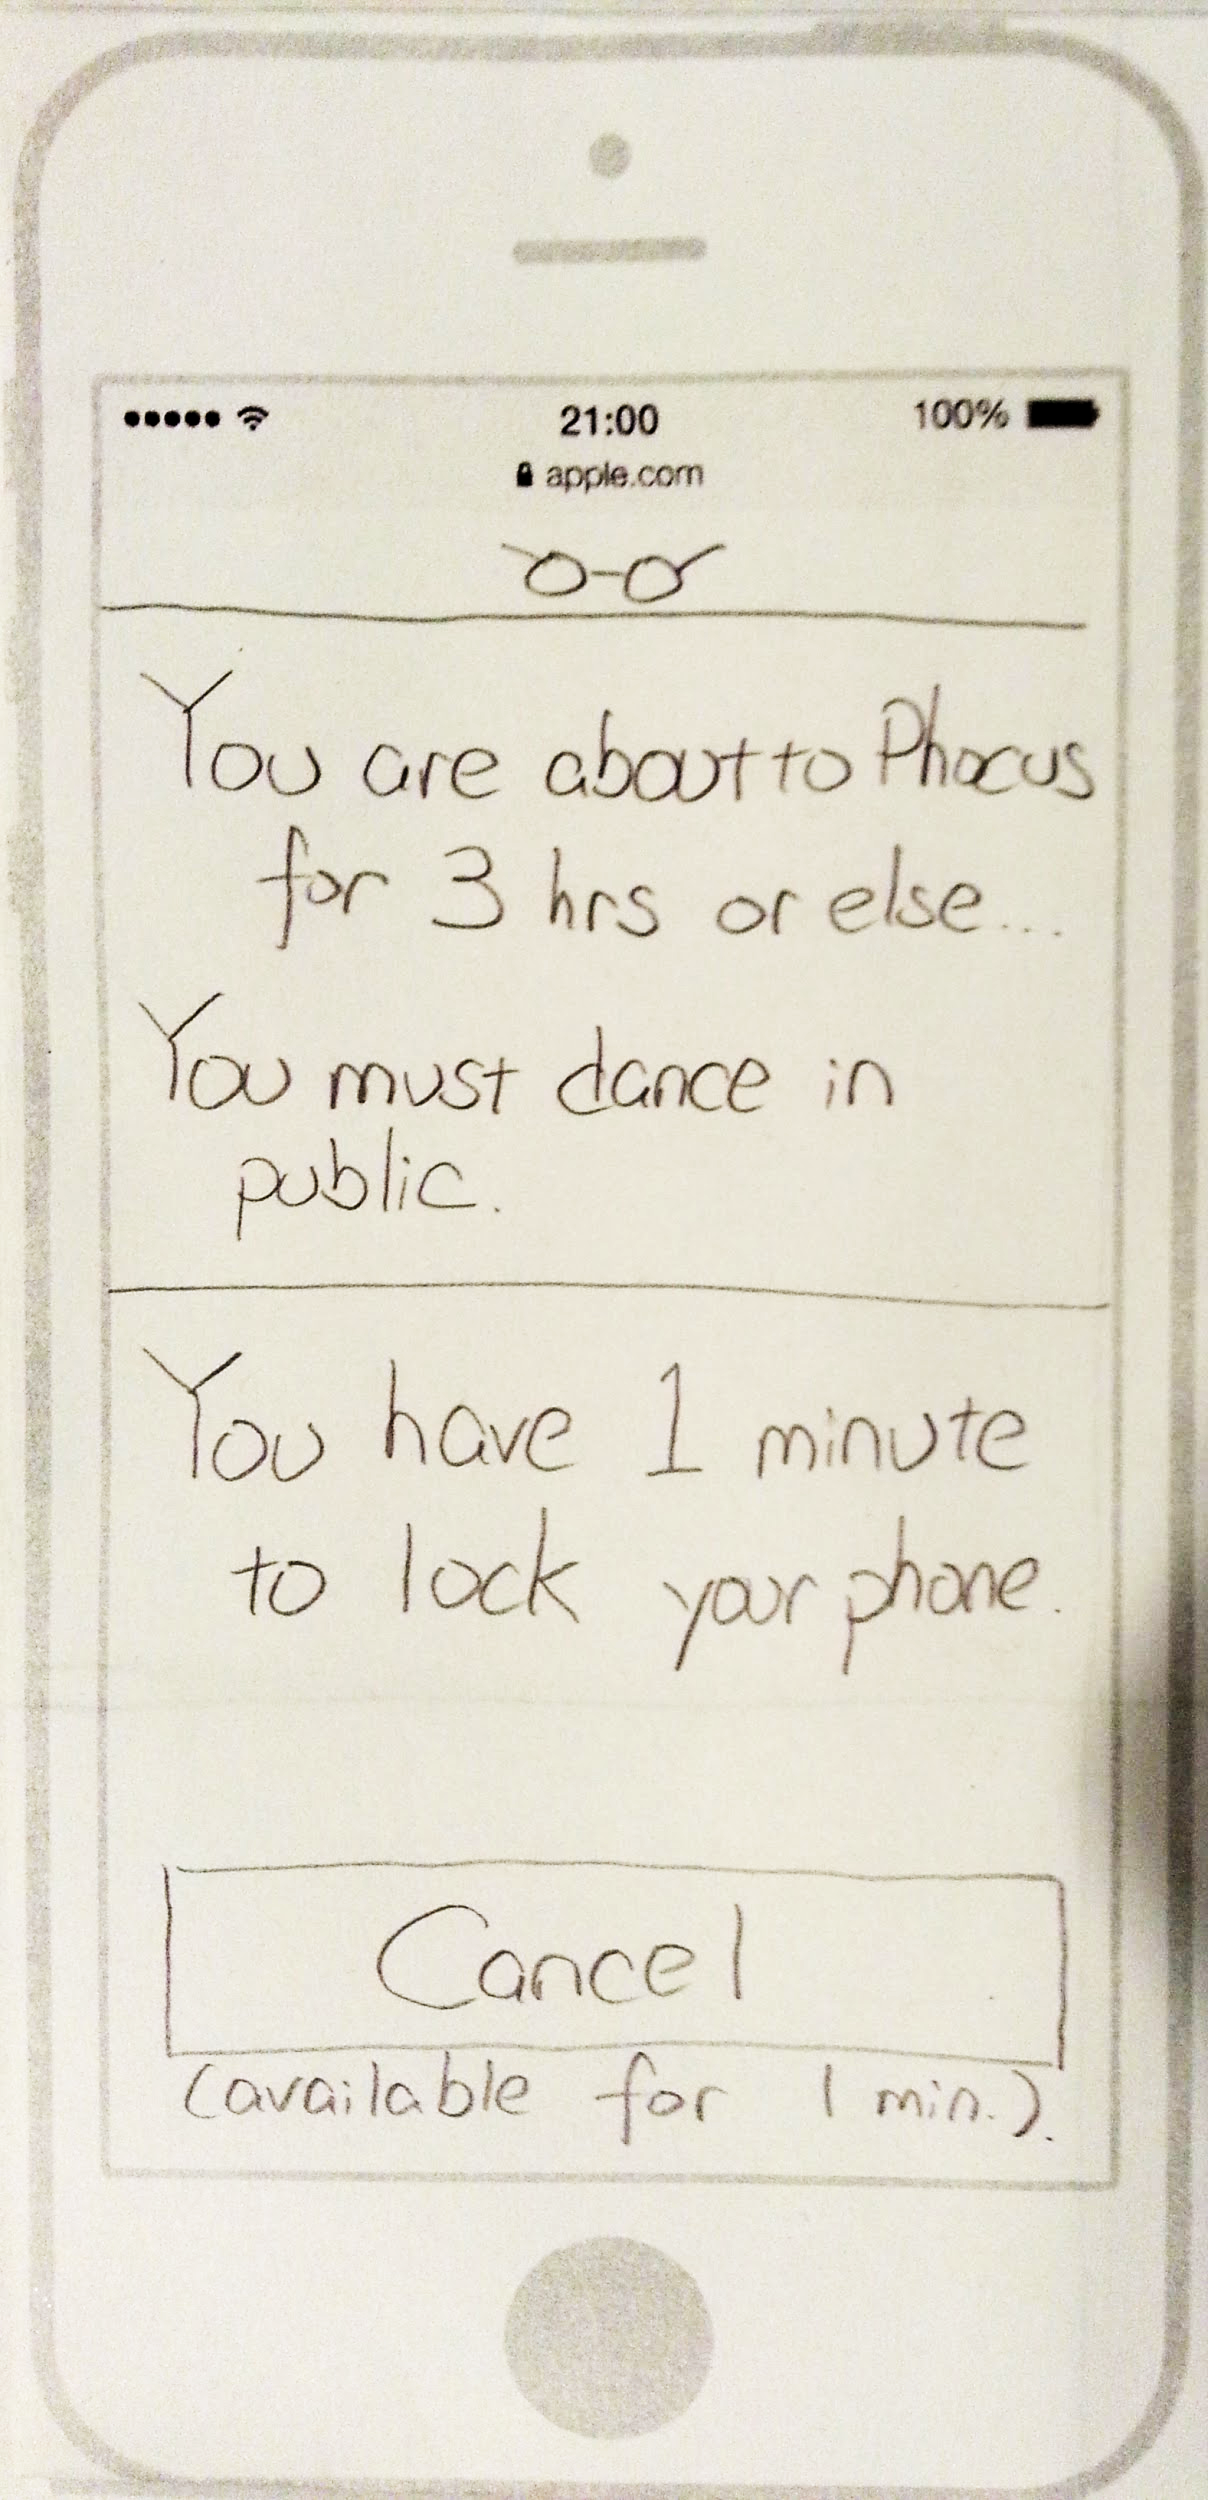 21:00 100%
apple.com
You are about to Phocus
for 3 hrs or else...
You must dance in
public.
You have 1 minute
to lock your phone.
Cancel
(available for 1 min.).